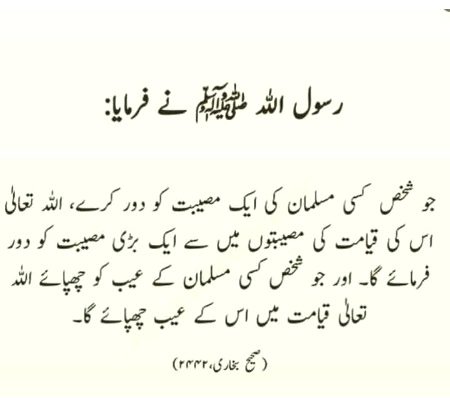 رسول اللہ ﷺ نے فرمایا:
جو شخص کسی مسلمان کی ایک مصیبت کو دور کرے، اللہ تعالیٰ
اس کی قیامت کی مصیبتوں میں سے ایک بڑی مصیبت کو دور
فرمائے گا۔ اور جو شخص کسی مسلمان کے عیب کو چھپائے اللہ
تعالیٰ قیامت میں اس کے عیب چھپائے گا۔
(صحیح بخاری،۲۴۴۲)